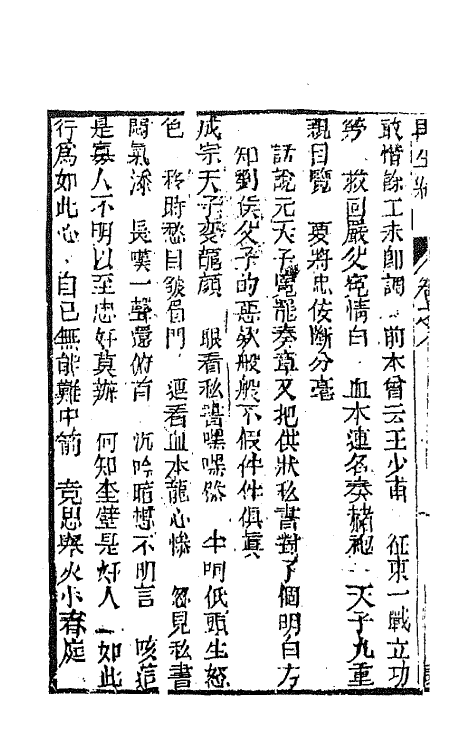 再生緣 卷十八
敢惜餘工未即調 前本曾云王少甫 征東一戰立功
勞 救回嚴父寃情白 血本連名奏赭袍 天子九重
親目覽 要將忠佞斷分毫
話說元天子覽罷奏章又把供狀私書對了個明白方
知劉侯父子的惡欵般般不假件件俱眞
成宗天子變龍顏 眼看私書嘿嘿然 半晌低頭生怒
色 移時愁目皺眉門 還看血本龍心慘 忽見私書
悶氣添 長嘆一聲還俯首 沉吟暗想不明言 咳這
是寡人不明以至忠奸莫辦 何知奎璧是奸人 如此
行爲如此心 自已無能難中箭 竟思舉火小春庭